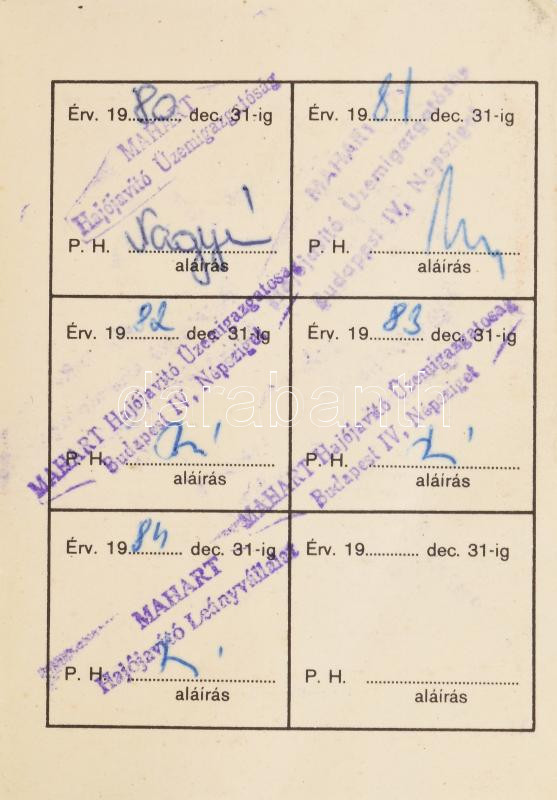 Érv. 1980 dec. 31-ig
MAHART
Hajójavító Üzemigazgatóság
P. H.
aláírás
Érv. 1981 dec. 31-ig
MAHART
Hajójavító Üzemigazgatóság
Budapest IV., Népsziget
P. H.
aláírás
Érv. 1982 dec. 31-ig
MAHART Hajójavító Üzemigazgatóság
Budapest IV., Népsziget
P. H.
aláírás
Érv. 1983 dec. 31-ig
MAHART Hajójavító Üzemigazgatóság
Budapest IV., Népsziget
P. H.
aláírás
darabanth
Érv. 1984 dec. 31-ig
MAHART
Hajójavító Leányvállalat
P. H.
aláírás
Érv. 19 dec. 31-ig
P. H.
aláírás